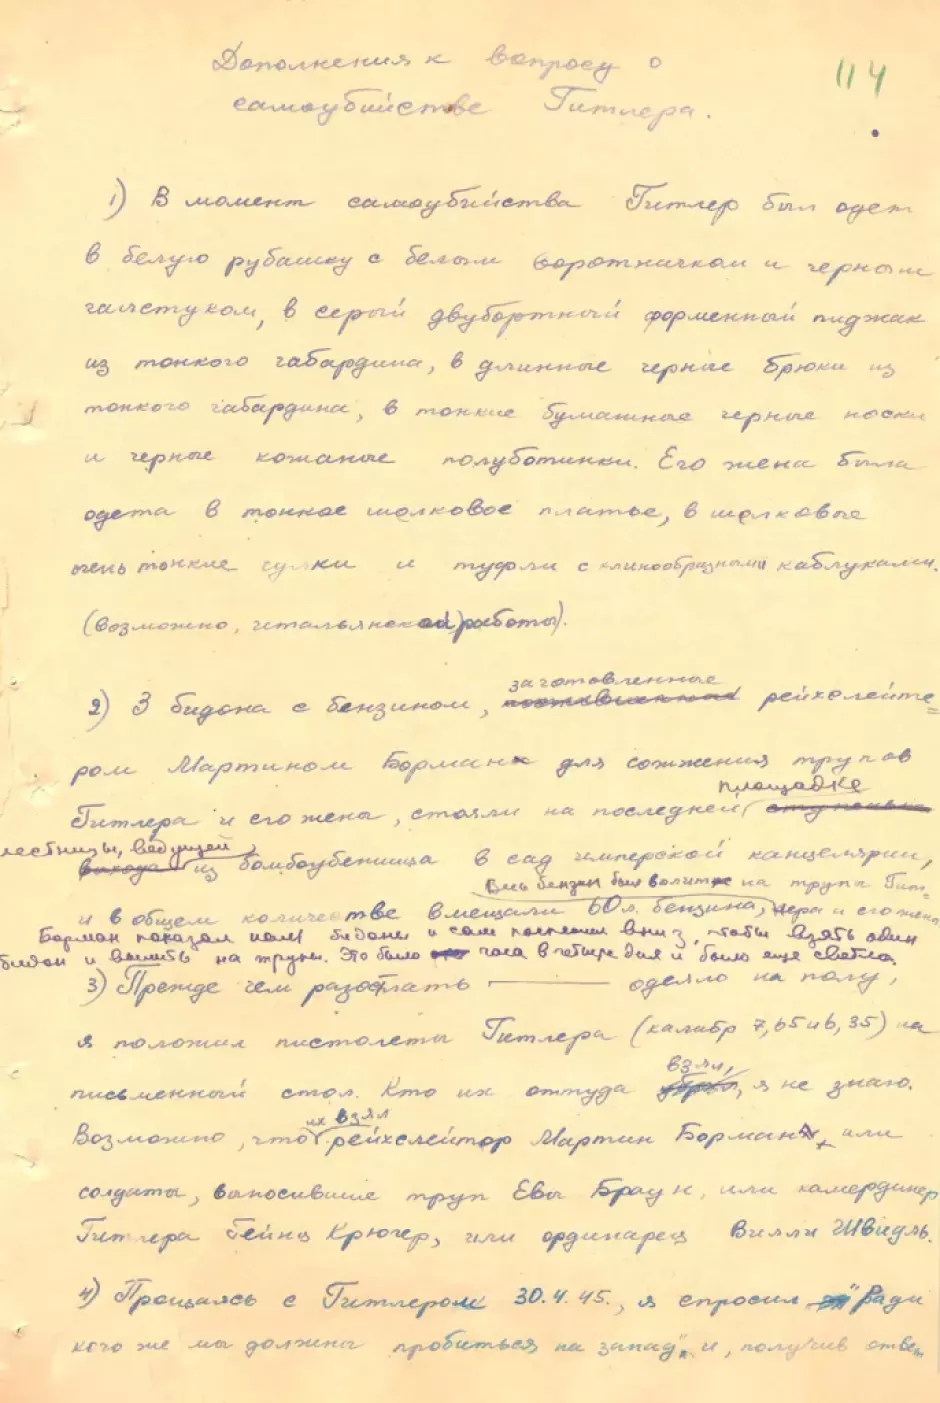 Дополнения к вопросу о
самоубийстве Гитлера.
114
1) В момент самоубийства Гитлер был одет
в белую рубашку с белым воротничком и черным
галстуком, в серый двубортный форменный пиджак
из тонкого габардина, в длинные черные брюки из
тонкого габардина, в тонкие бумажные черные носки
и черные кожаные полуботинки. Его жена была
одета в тонкое шелковое платье, в шелковые
очень тонкие чулки и туфли с клинообразными каблуками.
(возможно, итальянской работы).
заготовленные
2) 3 бидона с бензином, рейхслейте=
ром Мартином Борман для сожжения трупов
площадке
Гитлера и его жены, стояли на последней
лестницы, ведущей
выхода из бомбоубежища в сад имперской канцелярии,
весь бензин был вылит на трупы Гит-
и в общем количестве вмещали 60 л. бензина, лера и его жены
Борман показал мне бидоны и сам поспешил вниз, чтобы взять один
бидон и вылить на трупы. Это было часа в четыре дня и было еще светло.
3) Прежде чем разостлать одеяло на полу,
я положил пистолеты Гитлера (калибр 7,65 и 6,35) на
взял,
письменный стол. Кто их оттуда я не знаю.
их взял
Возможно, что рейхслейтор Мартин Борман, или
солдаты, выносившие труп Евы Браун, или камердинер
Гитлера Гейнц Крюгер, или ординарец Вилли Швидль.
4) Прощаясь с Гитлером 30.4.45., я спросил "Ради
кого же мы должны пробиться на запад" и, получив ответ